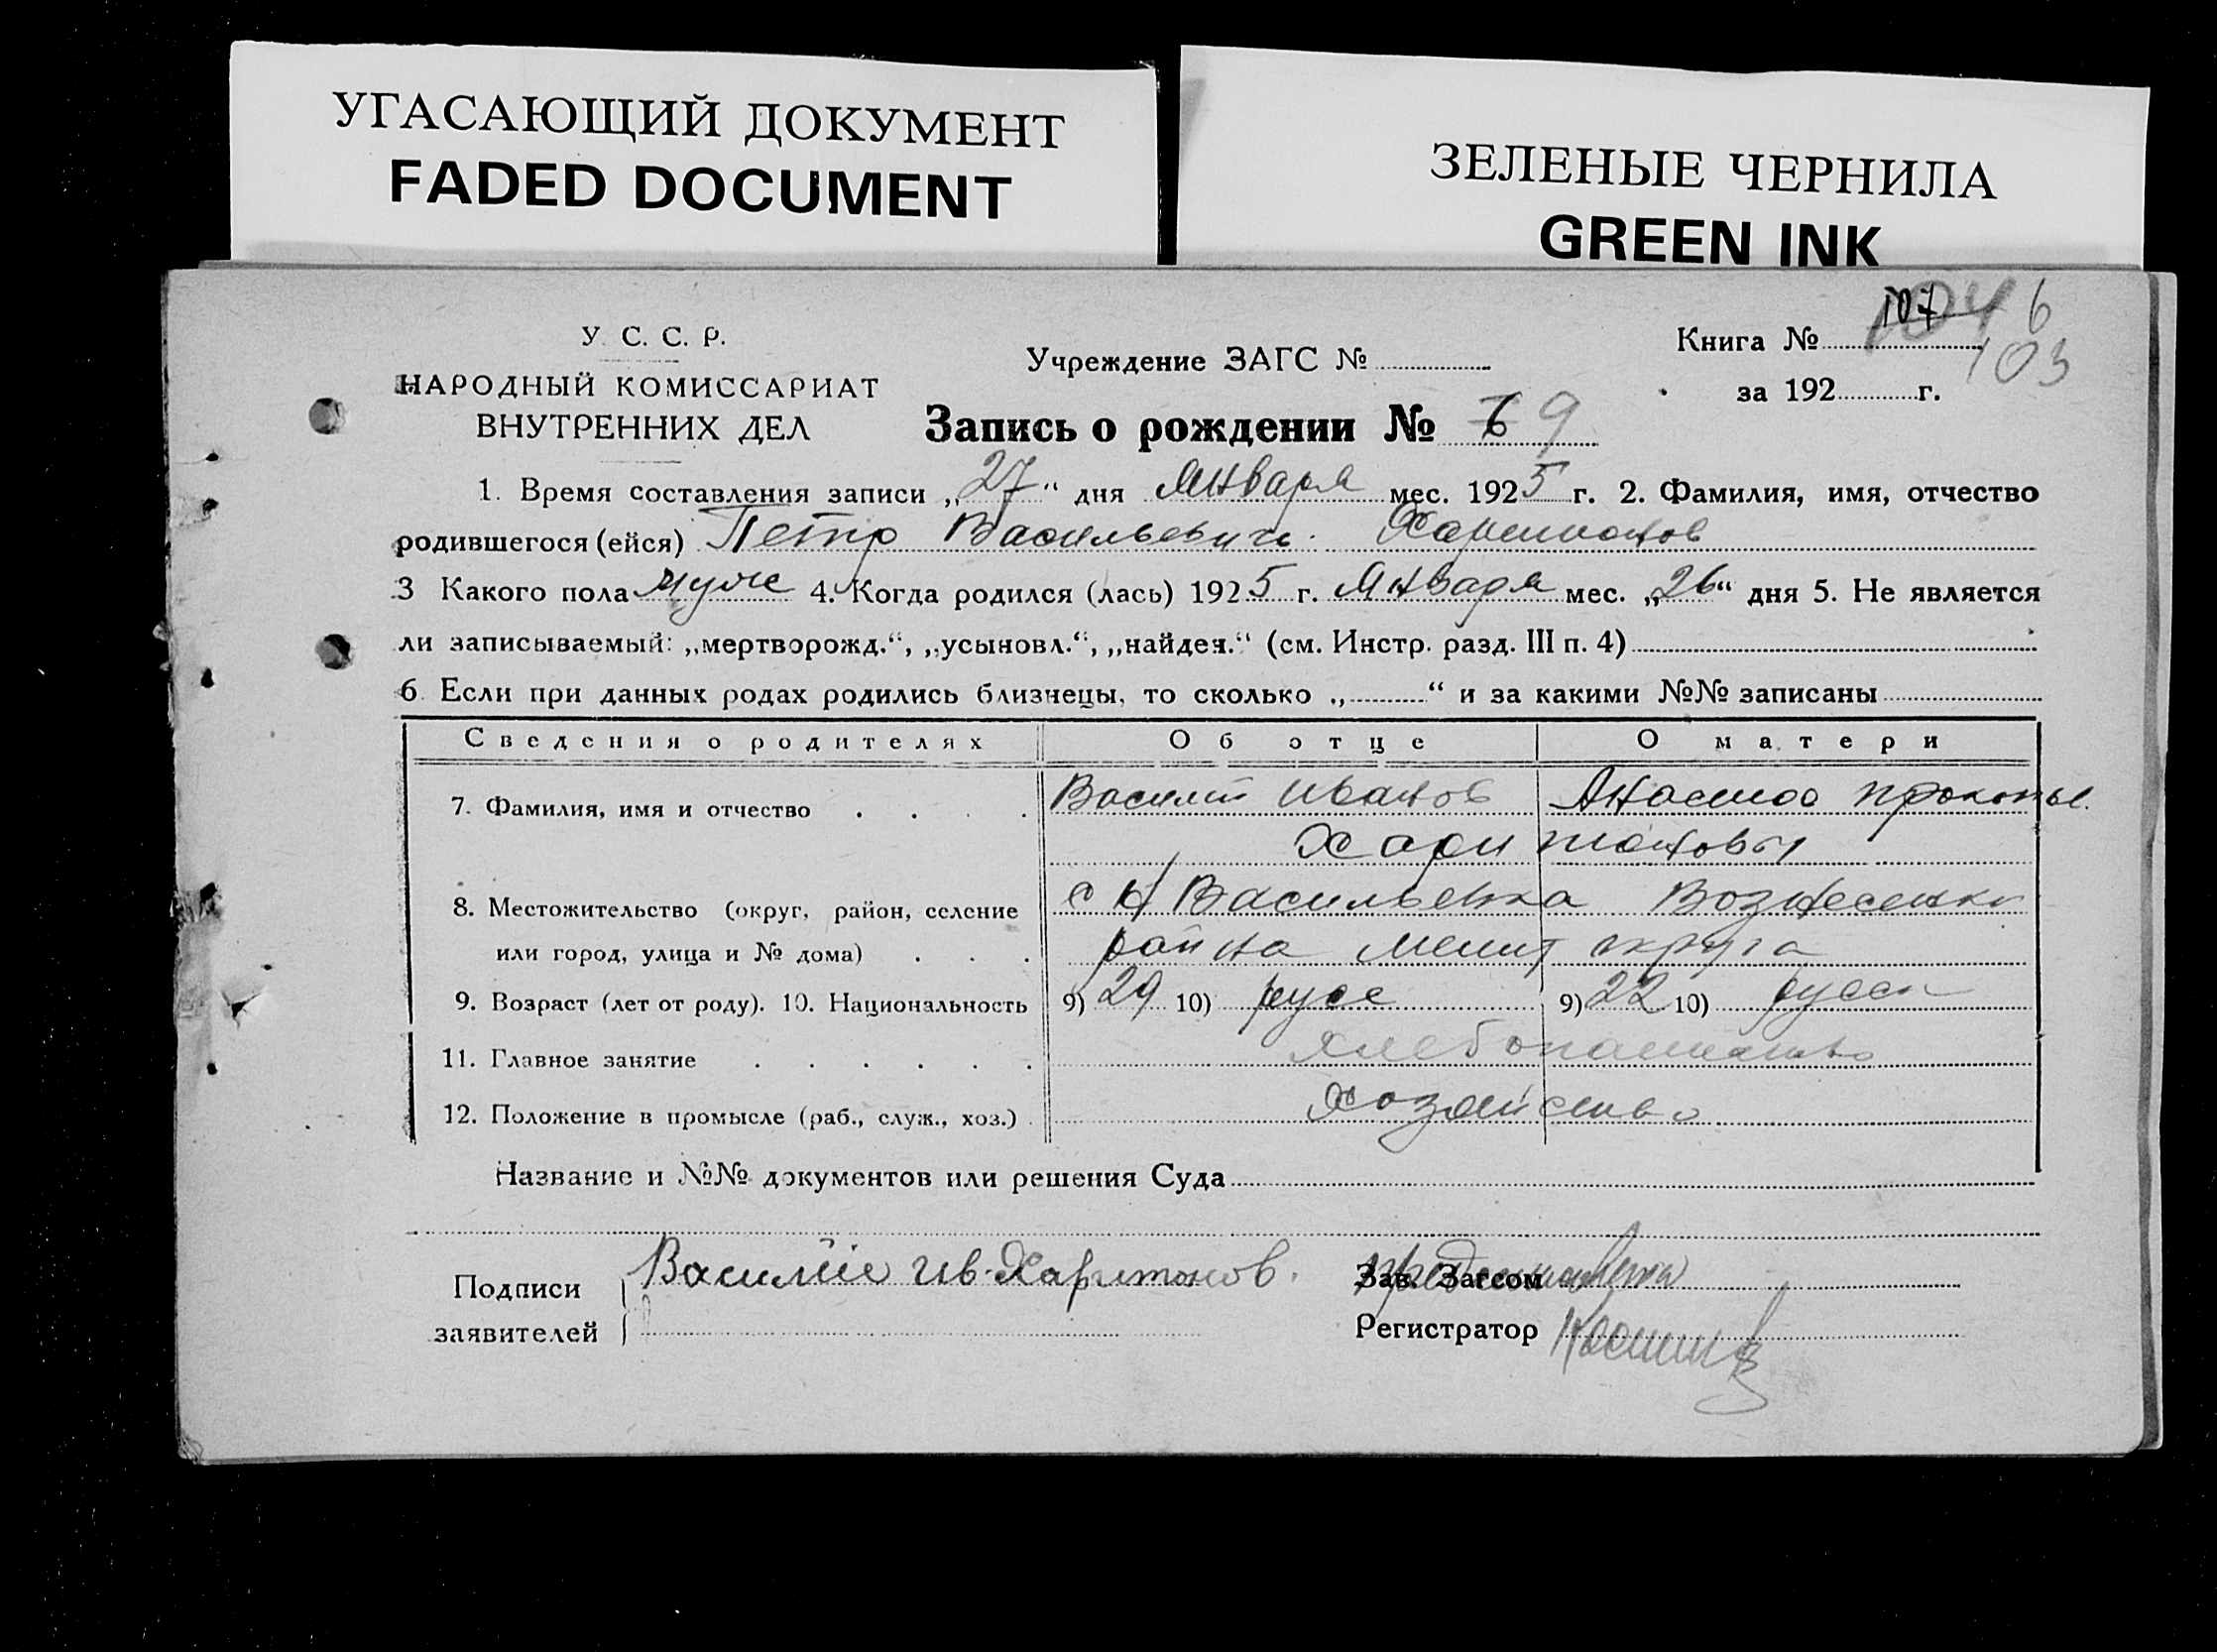 УГАСАЮЩИЙ ДОКУМЕНТ
FADED DOCUMENT
ЗЕЛЕНЫЕ ЧЕРНИЛА
GREEN INK
У. С. С. Р.
НАРОДНЫЙ КОМИССАРИАТ
ВНУТРЕННИХ ДЕЛ
Учреждение ЗАГС №
Книга № 107 6
103
за 192 г.
Запись о рождении № 9
1. Время составления записи „27“ дня Января мес. 1925 г. 2. Фамилия, имя, отчество
родившегося (ейся) Петр Васильевич Харитонов
3 Какого пола муж 4. Когда родился (лась) 1925 г. Января мес. „26“ дня 5. Не является
ли записываемый: „мертворожд.“, „усыновл.“, „найден.“ (см. Инстр. разд. III п. 4)
6. Если при данных родах родились близнецы, то сколько „ “ и за какими №№ записаны
Сведения о родителях Об отце О матери
7. Фамилия, имя и отчество Василий Иванов Прокопье.
Харитоновы
8. Местожительство (округ, район, селение с Н Васильевка Вознесенки
или город, улица и № дома) района Мелит округа
9. Возраст (лет от роду). 10. Национальность 9) 29 10) русс 9) 22 10) русск
11. Главное занятие хлебопашество
12. Положение в промысле (раб., служ., хоз.) хозяйство
Название и №№ документов или решения Суда
Подписи Василие Ив. Харитонов. Зав. Загсом
заявителей Регистратор